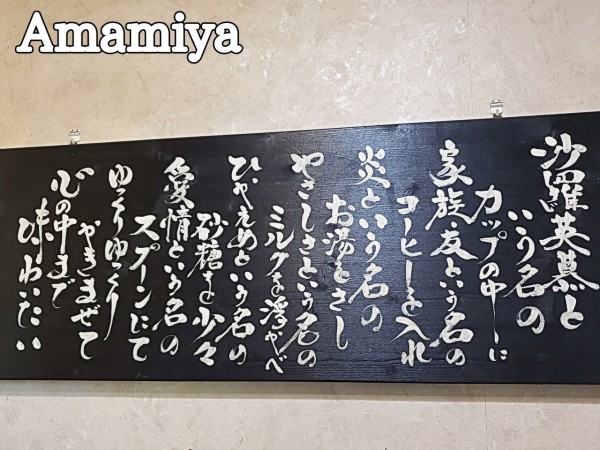 Amamiya
沙羅英慕と
いう名の
カップの中に
家族・友という名の
コーヒーを入れ
炎という名の
お湯をさし
やさしさという名の
ミルクを浮かべ
ひかえめという名の
砂糖を少々
愛情という名の
スプーンにて
ゆっくりゆっくり
かきまぜて
心の中まで
味わいたい